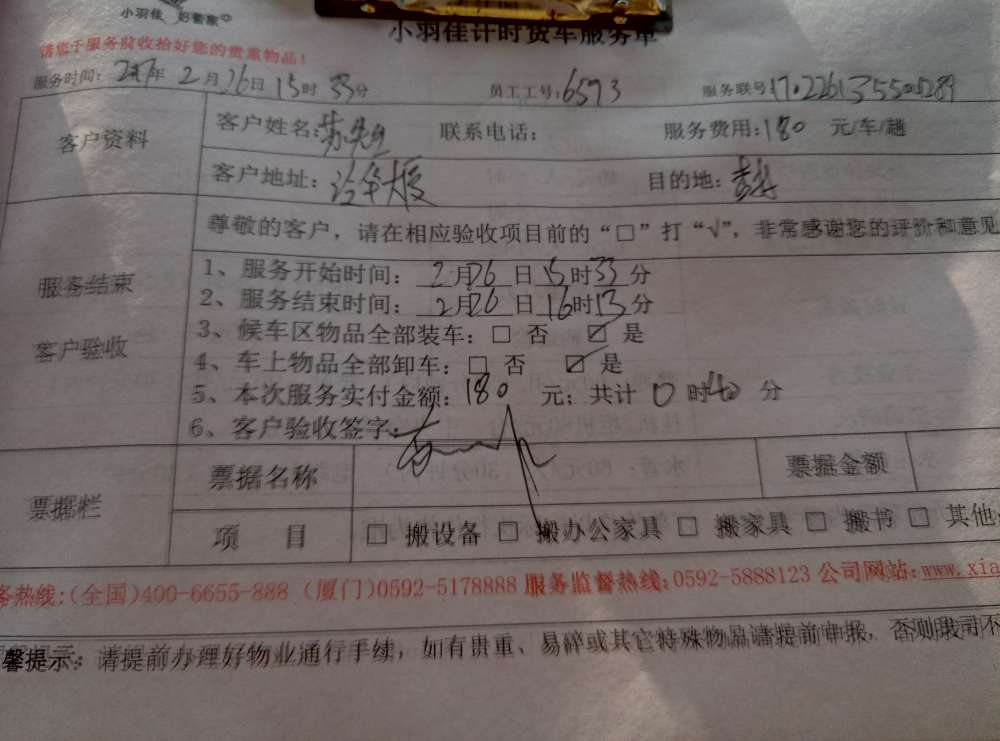 小羽佳 好管家
小羽佳计时货车服务单
请您于服务前收拾好您的贵重物品！
服务时间：2017年2月26日15时33分 员工工号：6593 服务联号
客户资料
客户姓名： 先生 联系电话： 服务费用：180 元/车/趟
客户地址： 大厦 目的地：
服务结束
客户验收
尊敬的客户，请在相应验收项目前的“□”打“√”，非常感谢您的评价和意见
1、服务开始时间：2月26日15时33分
2、服务结束时间：2月26日16时13分
3、候车区物品全部装车：□ 否 ☑ 是
4、车上物品全部卸车：□ 否 ☑ 是
5、本次服务实付金额：180 元；共计 0 时40 分
6、客户验收签字：
票据栏
票据名称 票据金额
项 目 □ 搬设备 □ 搬办公家具 □ 搬家具 □ 搬书 □ 其他
务热线:(全国)400-6655-888 (厦门)0592-5178888 服务监督热线:0592-5888123 公司网站:www.xia
馨提示：请提前办理好物业通行手续，如有贵重、易碎或其它特殊物品请提前申报，否则我司不